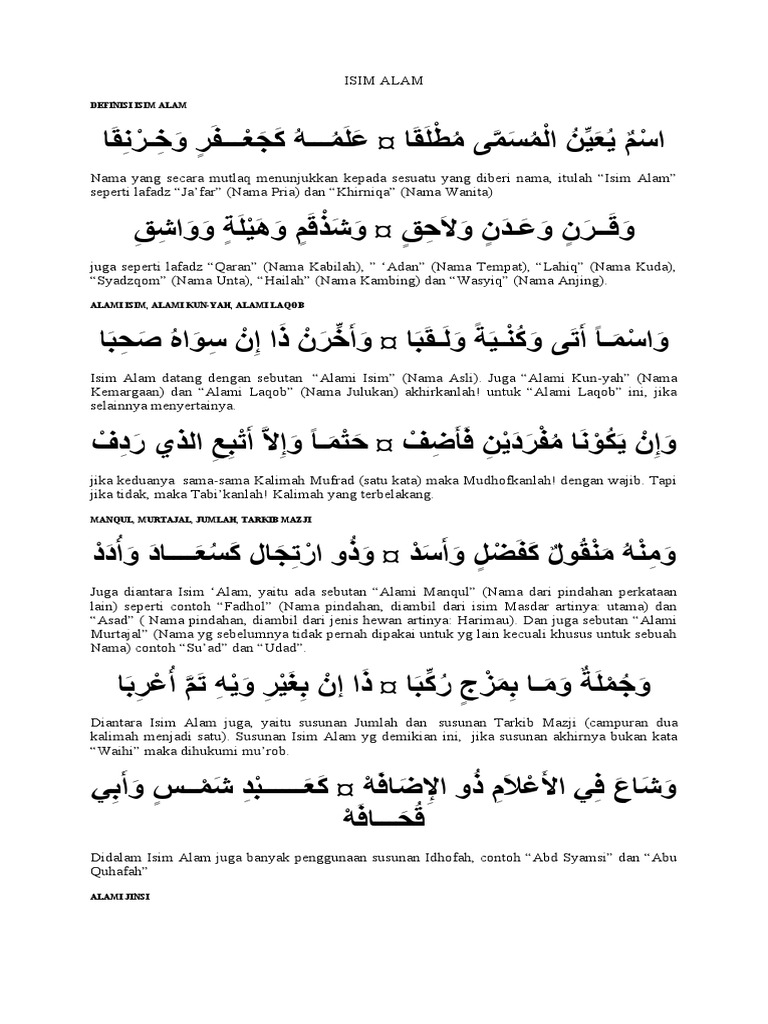 ISIM ALAM
DEFINISI ISIM ALAM
اسْمٌ يُعَيِّنُ الْمُسَمَّى مُطْلَقَا ¤ عَلَمُـــهُ كَجَعْـــفَرٍ وَخِـرْنِقَا
Nama yang secara mutlaq menunjukkan kepada sesuatu yang diberi nama, itulah “Isim Alam”
seperti lafadz “Ja’far” (Nama Pria) dan “Khirniqa” (Nama Wanita)
وَقَــرَنٍ وَعَـدَنٍ وَلاَحِقٍ ¤ وَشَذْقَمٍ وَهَيْلَةٍ وَوَاشِقِ
juga seperti lafadz “Qaran” (Nama Kabilah), ” ‘Adan” (Nama Tempat), “Lahiq” (Nama Kuda),
“Syadzqom” (Nama Unta), “Hailah” (Nama Kambing) dan “Wasyiq” (Nama Anjing).
ALAMI ISIM, ALAMI KUN-YAH, ALAMI LAQOB
وَاسْمَــاً أَتَى وَكُنْـيَةً وَلَـقَبَا ¤ وَأَخِّرَنْ ذَا إِنْ سِوَاهُ صَحِبَا
Isim Alam datang dengan sebutan “Alami Isim” (Nama Asli). Juga “Alami Kun-yah” (Nama
Kemargaan) dan “Alami Laqob” (Nama Julukan) akhirkanlah! untuk “Alami Laqob” ini, jika
selainnya menyertainya.
وَإِنْ يَكُوْنَا مُفْرَدَيْنِ فَأَضِفْ ¤ حَتْمَــاً وَإِلاَّ أَتْبِعِ الذي رَدِفْ
jika keduanya sama-sama Kalimah Mufrad (satu kata) maka Mudhofkanlah! dengan wajib. Tapi
jika tidak, maka Tabi’kanlah! Kalimah yang terbelakang.
MANQUL, MURTAJAL, JUMLAH, TARKIB MAZJI
وَمِنْهُ مَنْقُولٌ كَفَضْلٍ وَأَسَدْ ¤ وَذُو ارْتِجَالٍ كَسُعَــــادَ وَأُدَدْ
Juga diantara Isim ‘Alam, yaitu ada sebutan “Alami Manqul” (Nama dari pindahan perkataan
lain) seperti contoh “Fadhol” (Nama pindahan, diambil dari isim Masdar artinya: utama) dan
“Asad” ( Nama pindahan, diambil dari jenis hewan artinya: Harimau). Dan juga sebutan “Alami
Murtajal” (Nama yg sebelumnya tidak pernah dipakai untuk yg lain kecuali khusus untuk sebuah
Nama) contoh “Su’ad” dan “Udad”.
وَجُمْلَةٌ وَمَــا بِمَزْجٍ رُكِّبَا ¤ ذَا إنْ بِغَيْرِ وَيْهِ تَمَّ أُعْرِبَا
Diantara Isim Alam juga, yaitu susunan Jumlah dan susunan Tarkib Mazji (campuran dua
kalimah menjadi satu). Susunan Isim Alam yg demikian ini, jika susunan akhirnya bukan kata
“Waihi” maka dihukumi mu’rob.
وَشَاعَ فِي الأَعْلاَمِ ذُو الإِضَافَهْ ¤ كَعَـــــبْدِ شَمْــسٍ وَأَبِي
قُحَـــافَهْ
Didalam Isim Alam juga banyak penggunaan susunan Idhofah, contoh “Abd Syamsi” dan “Abu
Quhafah”
ALAMI JINSI